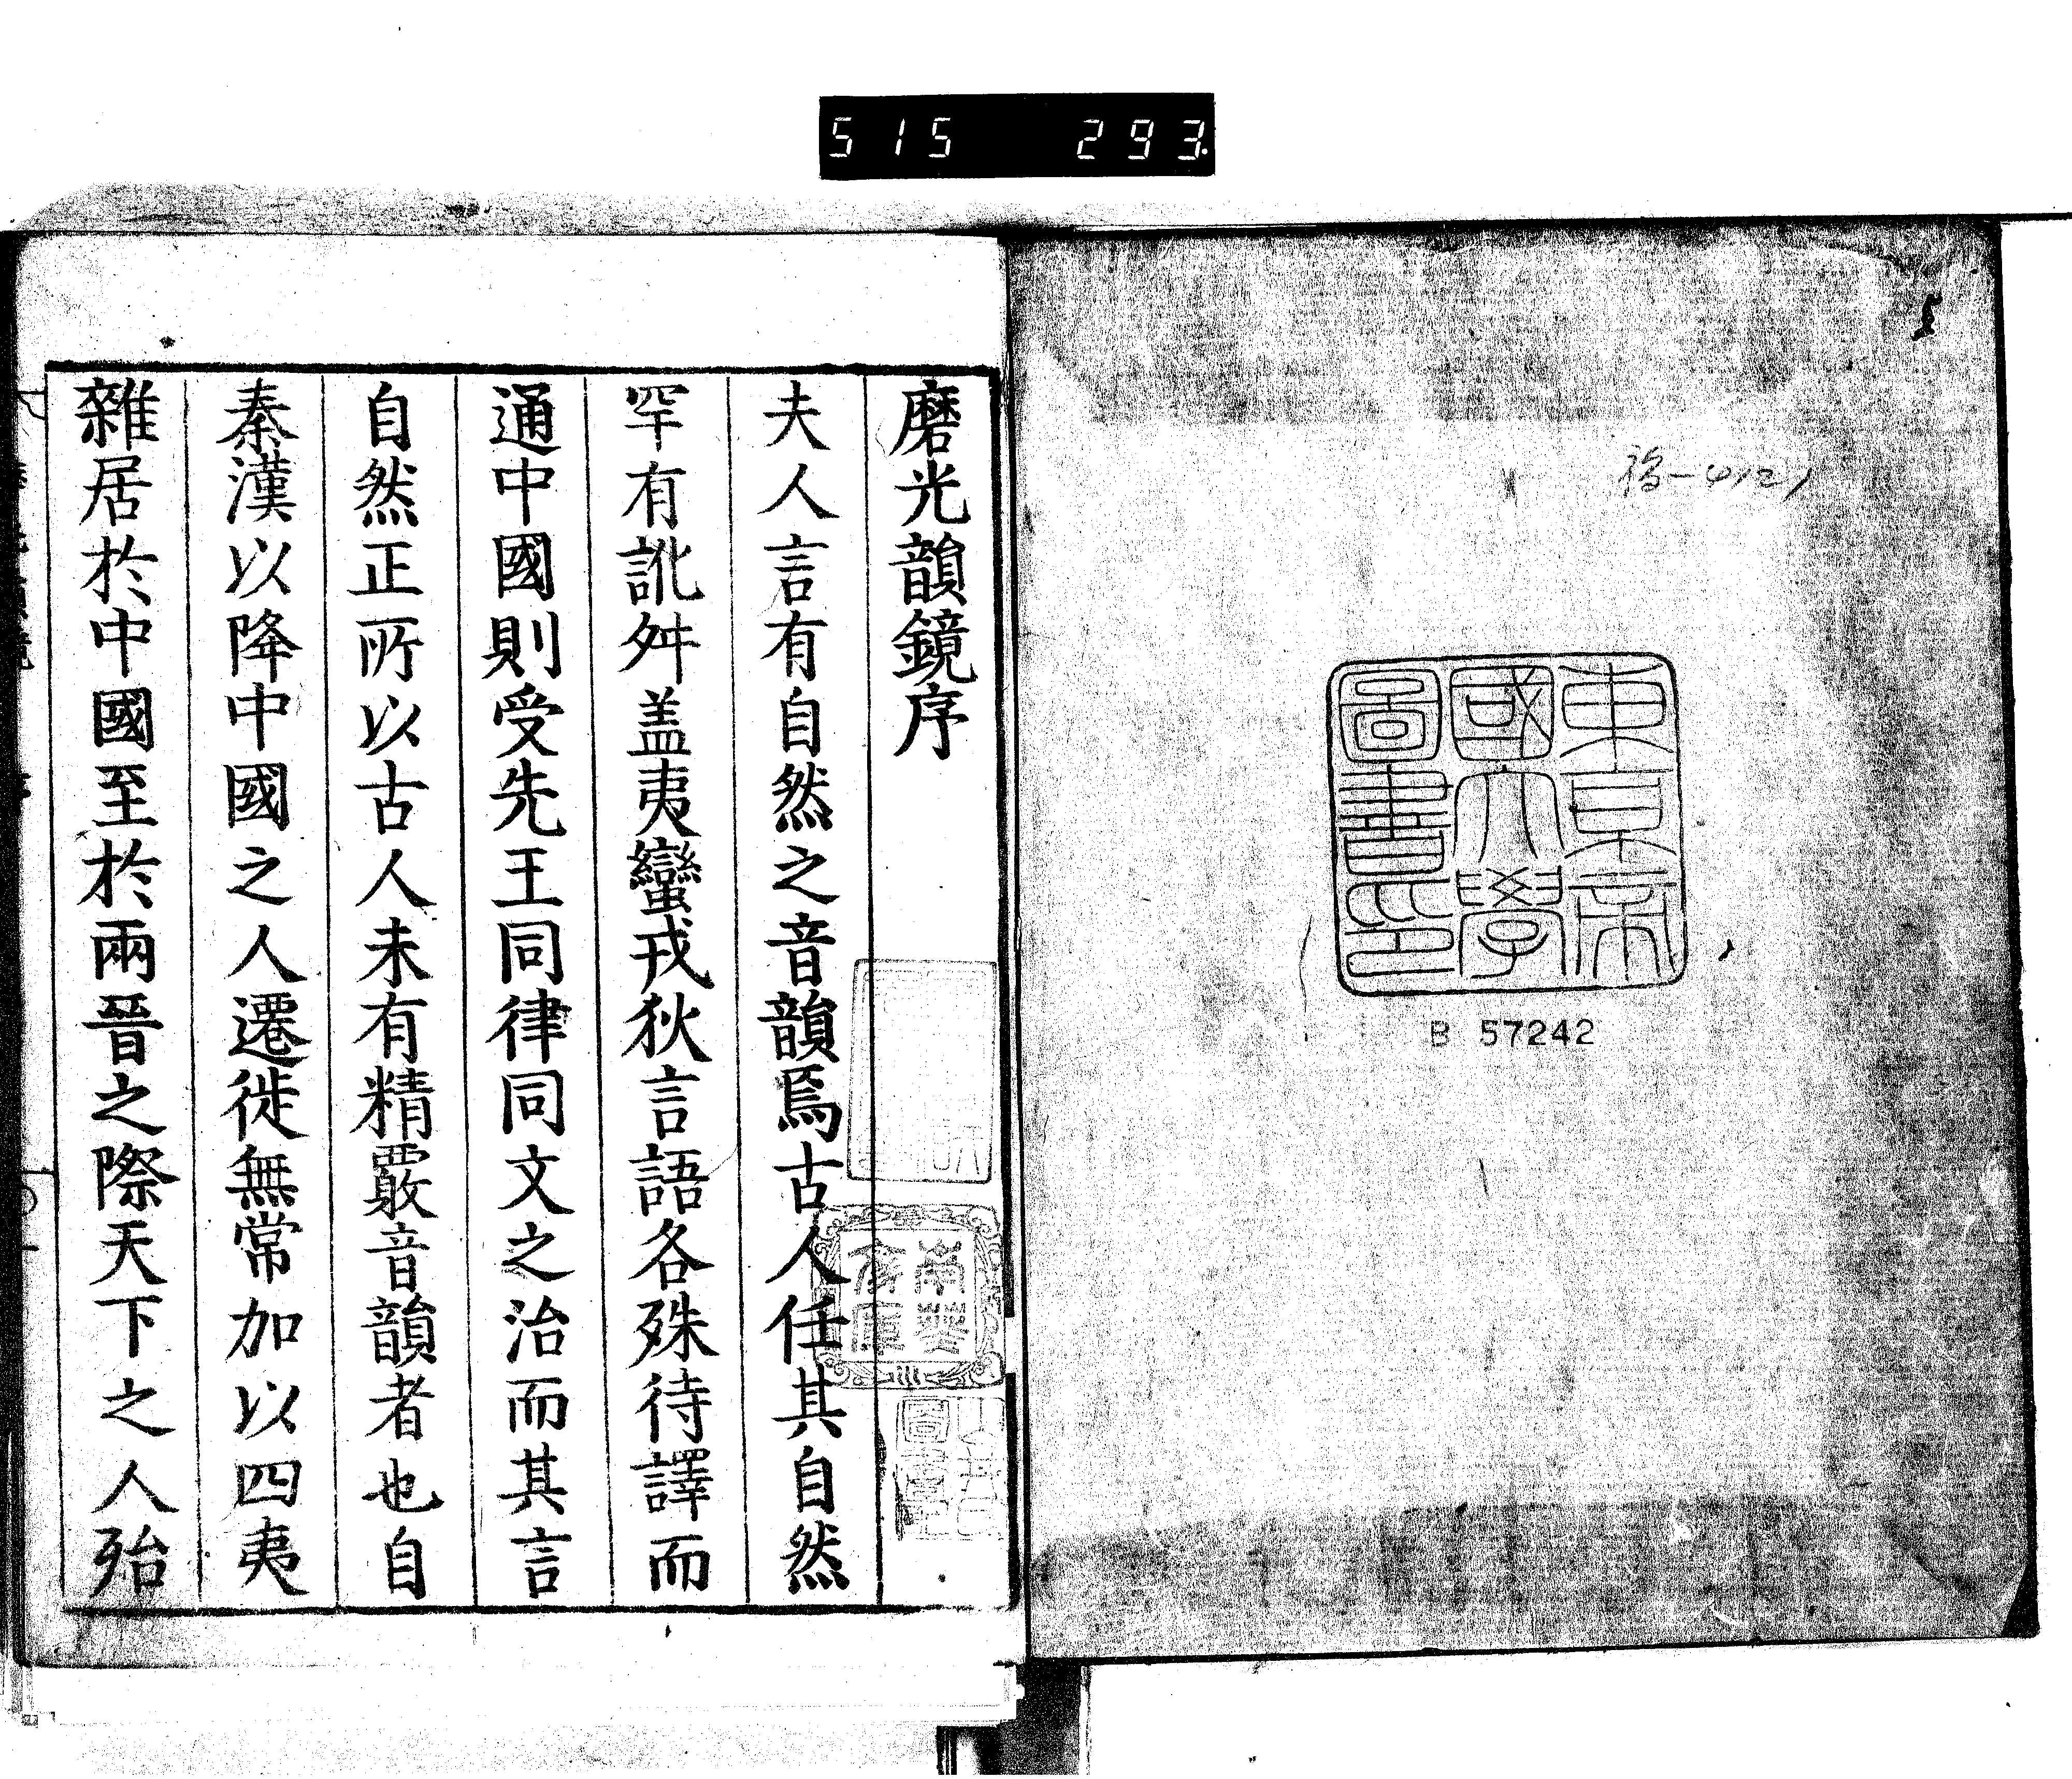 515 293
東京帝
國大學
圖書印
B 57242
磨光韻鏡序
夫人言有自然之音韻焉古人任其自然
罕有訛舛盖夷蠻戎狄言語各殊待譯而
通中國則受先王同律同文之治而其言
自然正所以古人未有精覈音韻者也自
秦漢以降中國之人遷徙無常加以四夷
雜居於中國至於兩晉之際天下之人殆
南葵
文庫